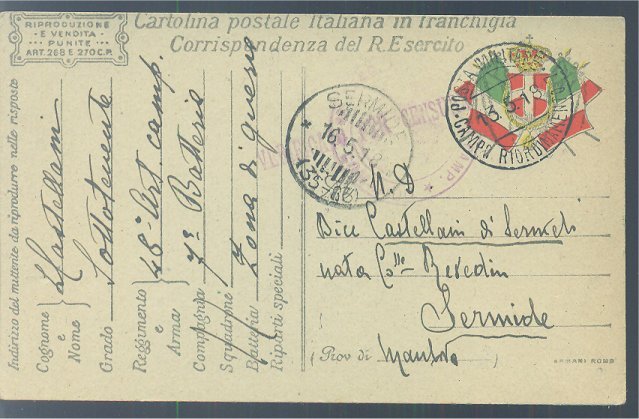 RIPRODUZIONE
E VENDITA
PUNITE
ART. 268 E 270 C.P.
Cartolina postale Italiana in franchigia
Corrispondenza del R. Esercito
POSTA MILITARE
13.5.18
P-CAMPO RIORDINAMENTO
SERMIDE
16.5.18
(35-76)
N.D
Bice Castellani di Sermeti
nata C.sse Revedin
Sermide
(Prov di Mantova
ARMANI ROMA
Indirizzo del mittente da riprodurre nelle risposte
Cognome e Nome } Castellani
Grado Sottotenente
Reggimento e Arma } 48° Art. camp.
Compagnia 7ª Batteria
Squadrone
Batteria Zona di guerra
Riparti speciali